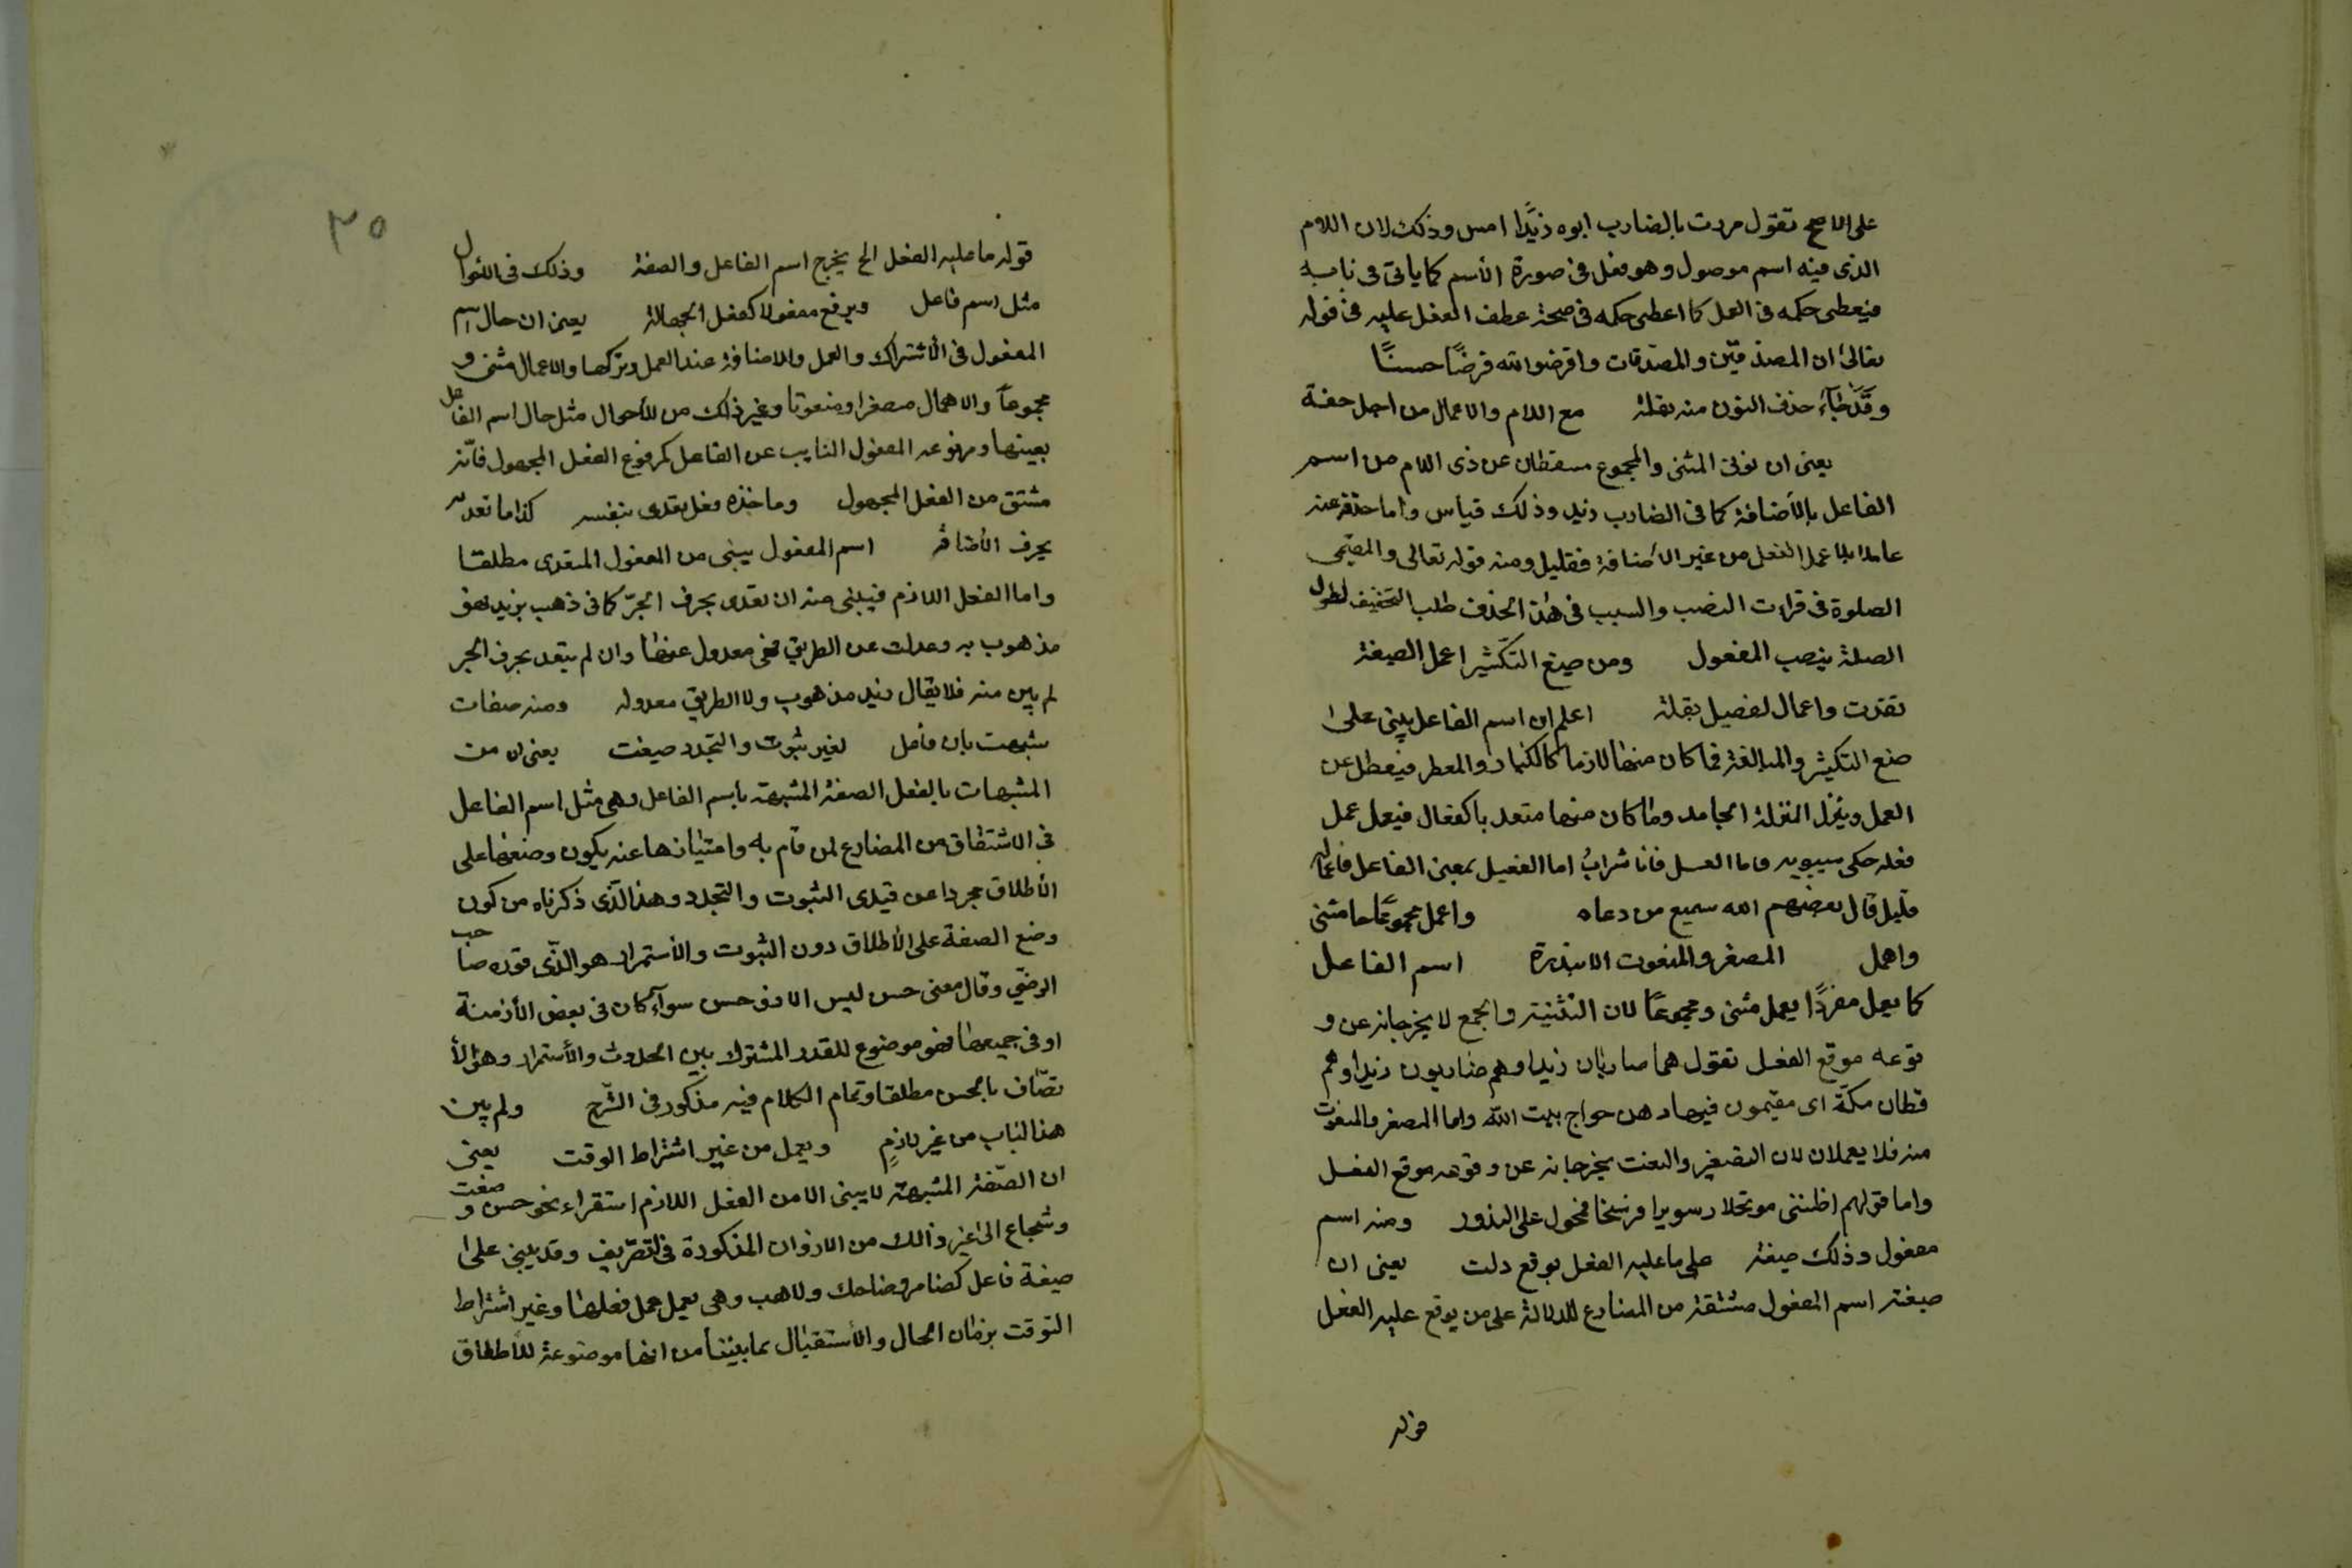 على الاصح تقول مردت بالضارب ابوه زيدًا امس وذلك لان اللام
الذى فيه اسم موصول وهو فعل فى صورة الأسم كما ياتى فى بابه
فيعطى حكمه فى العمل كما اعطى حكمه فى صحة عطف الفعل عليه فى قوله
تعالى ان المصدقين والمصدقات واقرضوا الله قرضًا حسنًا
وقد جآء حذف النون منه نقلة مع اللام والاعمال من اجل خفة
يعنى ان نونى المثنى والمجموع مسقطان عن ذى اللام من اسم
الفاعل بالأضافة كما فى الضارب زيد وذلك قياس واما حذفه عنه
عاملا عمل الفعل من غير الاضافة فقليل ومنه قوله تعالى والمقيمى
الصلوة فى قراءت النصب والسبب فى هذا الحذف طلب التخفيف لطول
الصلة بنصب المفعول ومن صيغ التكثير اعمل الصيغة
نقدت واعمال لفعيل بقلة اعلم ان اسم الفاعل يبنى على
صيغ التكثير والمبالغة فما كان منها لازما والمعطر فيعطل عن
العمل وينزل المنزلة الجامد وما كان منها متعد باكفعال فيعمل عمل
فعله حكى سيبويه واما العسل فانا شراب اما الفعيل بمعنى الفاعل فاعماله
قليل قال بعضهم الله سميع من دعاه واعمل مجموعًا مثنى
واهمل المصغر والمنعوت الا بندرة اسم الفاعل
كما يعمل مفردًا يعمل مثنى ومجموعًا لان التثنية والجمع لا يخرجانه عن و
قوعه موقع الفعل تقول هما ضاربان زيدا وهم ضاربون زيدا وهم
قطان مكة اى مقيمون فيها وهن حواج بيت الله واما المصغر والمنعوت
منه فلا يعملان لان التصغير والنعت يخرجانه عن وقوعه موقع الفعل
واما قولهم اظننى مرتحلا وسويرا فرسخا فمحول على الندور ومنه اسم
مفعول وذلك صيغة على ما عليه الفعل بوقع دلت يعنى ان
صيغة اسم المفعول مشتقة من المضارع للدلالة على من يوقع عليه الفعل
قوله
٣٥
قوله ما عليه الفعل الخ يخرج اسم الفاعل والصفة وذلك فى
مثل اسم فاعل ويرفع مفعولا كفعل الجهالة يعنى ان حال اسم
المفعول فى الأشتراك والعمل والاضافة عند العمل وتركها والاعمال مثنى و
مجموعاً والاهمال مصغرا ومنعوتا وغير ذلك من الأحوال مثل حال اسم الفاعل
بعينها ومرفوعه المفعول النايب عن الفاعل كمرفوع الفعل المجهول فانه
مشتق من الفعل المجهول وما خذه فعل بقدى بنفسه كذا ما تعديه
بحرف الأضافة اسم المفعول يبنى من المفعول المتعدى مطلقا
واما الفعل اللازم فيبنى منه ان تعدى بحرف الجرّ كما فى ذهب بزيد فهو
مذهوب به وعدلت عن الطريق فهى معدول عنها وان لم يتعد بحرف الجر
لم يبن منه فلا يقال زيد مذهوب ولا الطريق معدوله ومنه صفات
شبهت بان فاعل لغير ثبوت والتجدد صيغت يعنى ان من
المشبهات بالفعل الصفة المشبهة باسم الفاعل وهى مثل اسم الفاعل
فى الاشتقاق من المضارع لمن قام به وامتيازها عنه بكون وضعها على
الأطلاق مجردا عن قيدى الثبوت والتجدد وهذا الّذى ذكرناه من كون
وضع الصفة على الأطلاق دون الثبوت والأستمرار هو الّذى قوره صاحب
الرضى وقال معنى حسن ليس الا ذو حسن سوآء كان فى بعض الأزمنة
او فى جميعها فهو موضوع للقدر المشترك بين الحدوث والأستمرار وهو الأ
تصّاف بالحسن مطلقا وتمام الكلام فيه مذكور فى الشّرح ولم يبن
هذا الباب من غير لازمٍ ويعمل من غير اشتراط الوقت يعنى
ان الصّفة المشبهة لا يبنى الا من الفعل اللازم استقراء نحو حسن و صعب
وشجاع الى غير ذالك من الاوزان المذكورة فى التصريف وقد يبنى على
صيغة فاعل كضامر وضاحك ولاهب وهى يعمل عمل فعلها وغير اشتراط
التوقت بزمان الحال والأستقبال بما بيننا من انها موضوعة للأطلاق